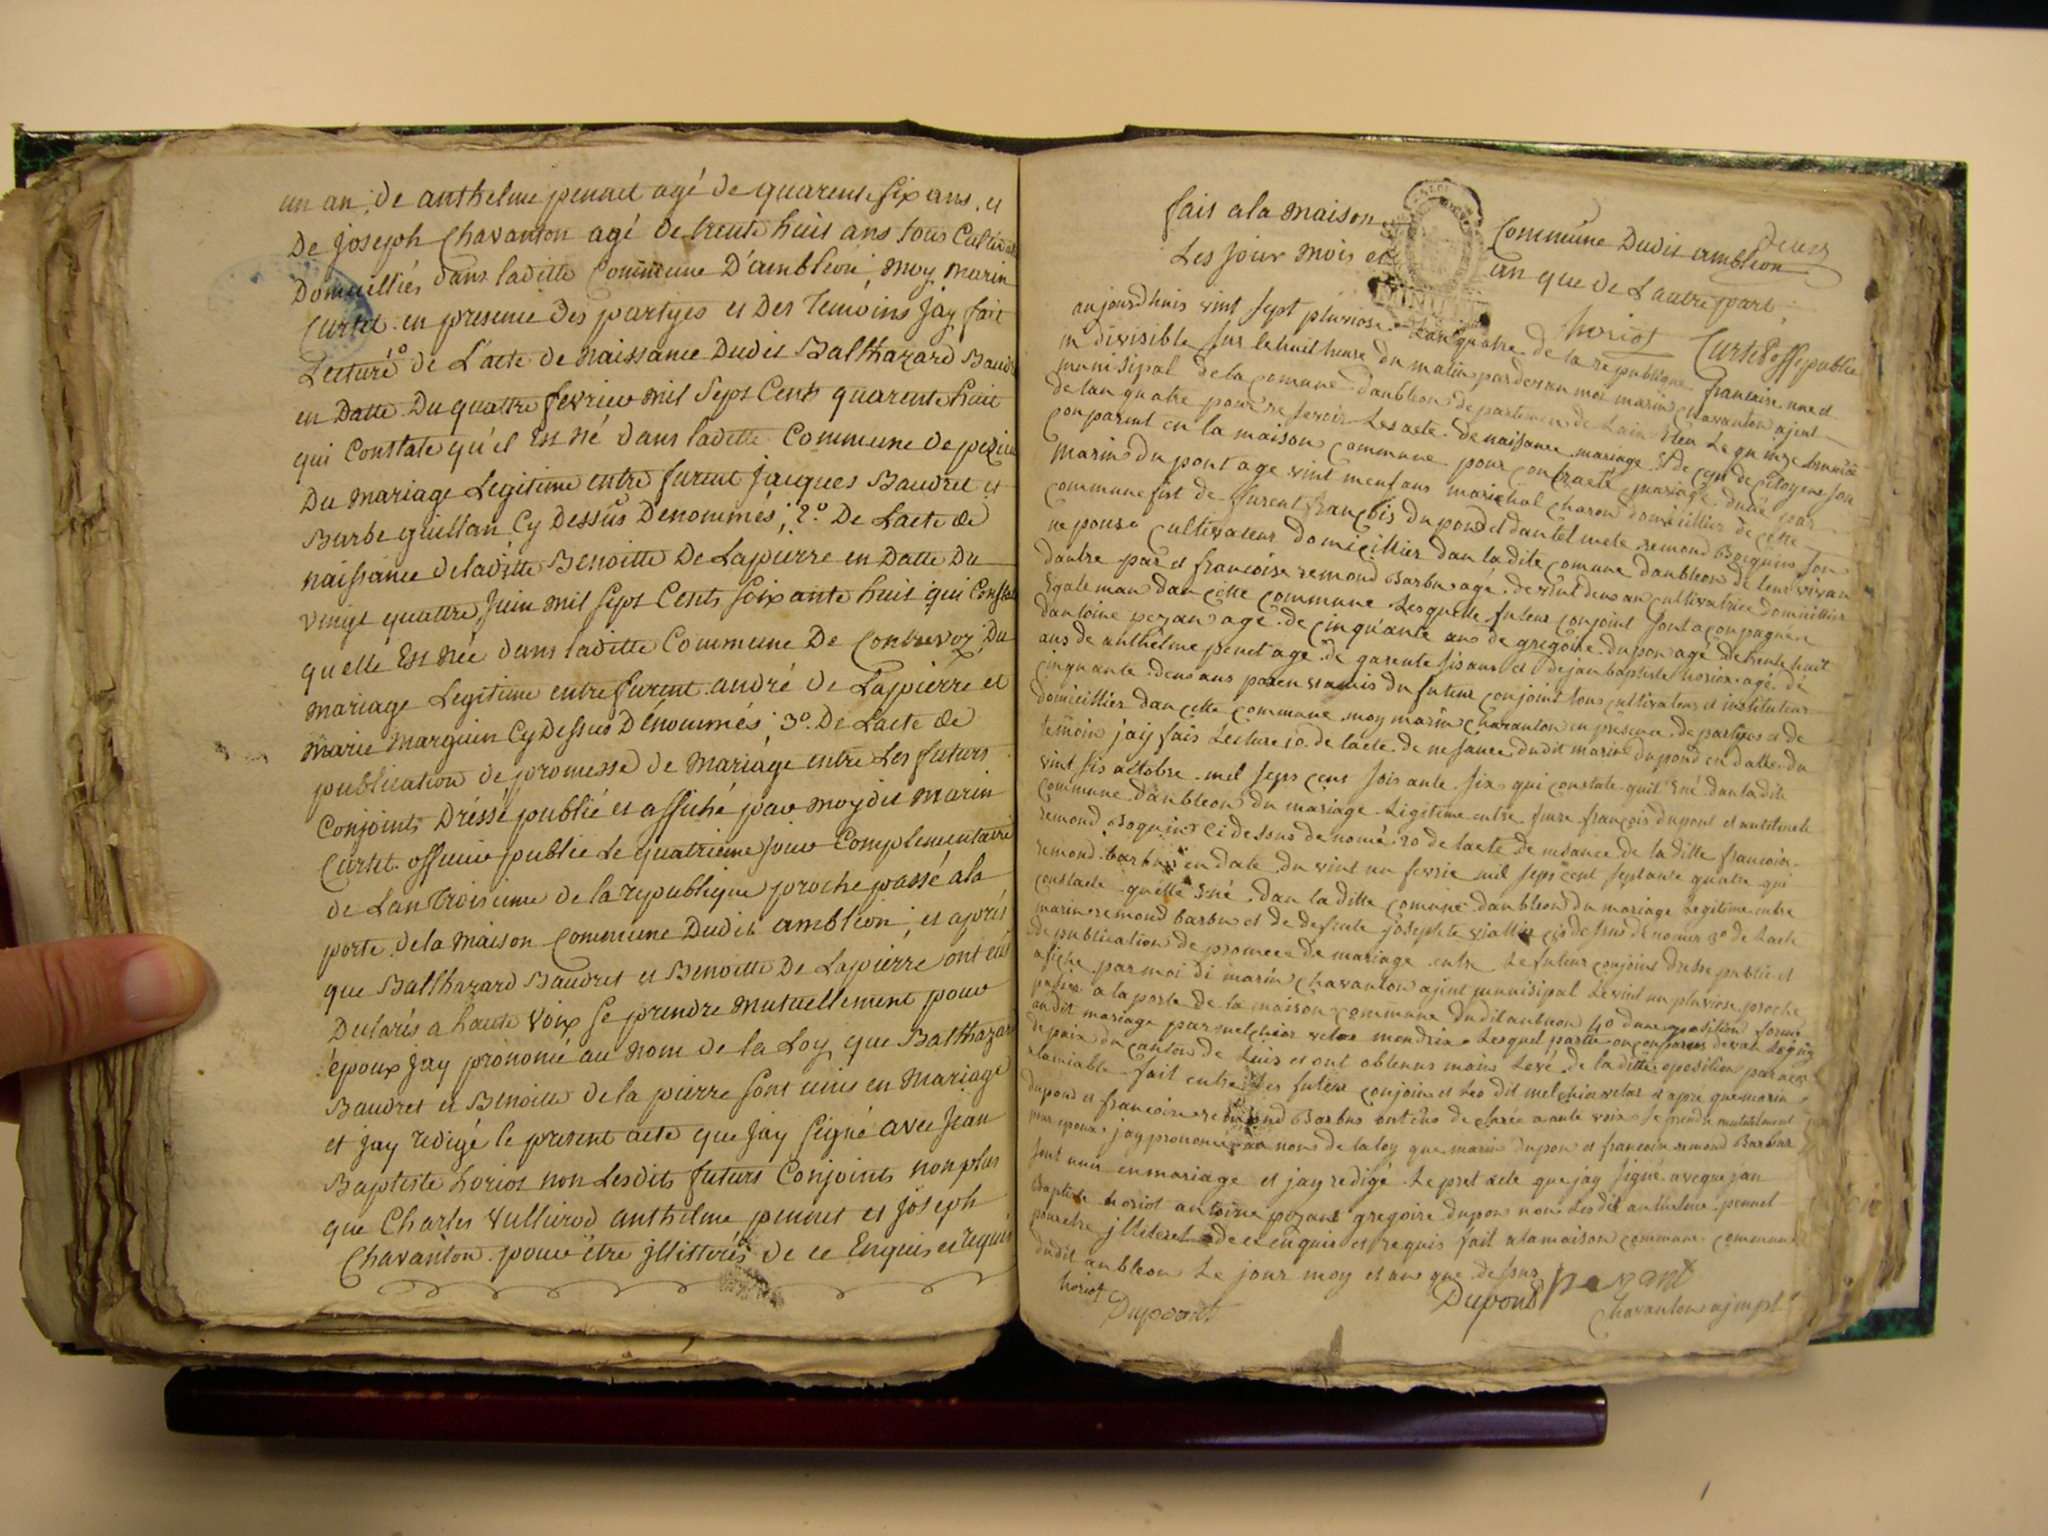 un an, de anthelme pennet agé de quarente six ans, et
De Joseph Chavanton agé de trente huit ans tous Cultiv
Domicilliés dans laditte Commune D'ambleon; moy marin
Curtet en presence Des partyes et Des Temoins Jay fait
Lecture 1o De L'acte de naissance Dudit Balthazard Baud
en Datte Du quattre fevrier mil Sept Cents quarente huit
qui Constate qu'il Est né dans laditte Commune de
Du mariage Legitime entre furent Jacques Baudret et
Barbe guillan Cy Dessus Denommés; 2o De Lacte de
naissance de laditte Benoitte De Lapierre en Datte Du
vingt quattre Juin mil Sept Cents Soixante huit qui Const
quelle Est née dans laditte Commune De Contrevoz; Du
mariage Legitime entre furent andré de Lapierre et
marie marguin Cy Dessus Dénommés; 3o. De Lacte de
publication de promesse de mariage entre Les futurs
Conjoints Dréssé publié et affiché par moy dit marin
Curtet officier public Le quatrieme jour Complementaire
de Lan troisieme de la republique proche passé a la
porte de la maison Commune Dudit ambléon; et après
que Balthazard Baudret et Benoitte De Lapierre ont eté
Declarés a haute voix Se prendre mutuellement pour
époux Jay prononcé au nom de la Loy que Balthazar
Baudret et Benoitte de la pierre sont unis en mariage
et Jay redigé le present acte que Jay Signé avec Jean
Baptiste horiot non Lesdits futurs Conjoints non plus
que Charles Vullierod anthelme pennet et Joseph
Chavanton pour être jllitterés de ce Enquis et requis
fait a la maison Commune Dudit ambleon
Les jour mois et an que de Lautre part;
horiot Curtet off publi
aujourdhuis vint sept pluviose Lan quatre de la republique francaise une et
indivisible sur le huit heure du matin par devan moi marin chavanton ajent
munisipal de la comune danbleon departemen de Lain Eleu Le quinze brumere
de lan quatre pour re sevoir Les acte de naisance mariage et de
conparut en la maison commune pour contracte mariage dune par
marin du pont age vint neuf ans marichal charon domicillier de cette
commune fist de furent françois du pond et dantelmete remond Boquin son
ne pouse cultivateur domicillier dan la dite comune danbleon de leur vivan
dautre par et francoise remond Barbu agé de vint deus an cultivatrice domicillier
Egaleman dan cette commune Lesquelle futeur conjoint sont aconpagné
dantoine pezan agé de cinquante ans de gregoire dupon agé de trente huit
ans de anthelme penet age de garente sis ans et de jan baptiste horiot agé de
cinquante deus ans paren et amis du futeur conjoint tous cultivateur et instituteur
domicillier dan cette commune moy marin chavanton en presence de partyes et de
temoin j'ay fais Lecture 1o. de lacte de nesance dudit marin dupond en datte du
vint sis octobre mil sept cent soisante six qui constate quil Est né dan la dite
commune danbleon du mariage Legitime entre feure françois dupont et antelmete
remond Boquin ci dessus de nomé 2o de lacte de nesance de la ditte francoise
remond barbus en date du vint un fevrie mil sept cent septante quatre qui
constacte quelle Est né dan la ditte comune danbleon du mariage Legitime entre
marin remond barbu et de defunte josephte viallier ci desus de nomer 3o de Lacte
de publication de promece de mariage entre Le futeur conjoint dresse publié et
afiché par moi di marin chavanton ajent munisipal Le vint un pluviose proche
passé a la porte de la maison commune dudit anbleon 4o dune oposition formé
au dit mariage par melchior velat Lesquel partie devan Le juge
de paix du canton de Luis et ont obtenu main Levé de la ditte oposition par
Lamiable fait entre Les futeur conjoin et Le dit melchior velat et apré que marin
dupond et francoise remond Barbus ont étes declaré a aute voix se prendre mutuelment
pour epoux jay prononcé au nom de la loy que marin dupon et francoise remond Barbus
sont unis en mariage et jay redigé Le preset acte que jay signé aveque jan
Baptiste horiot antoine pezant gregoire dupon non Les dit anthelme pennet
pour etre jlliteret de ce enquis et requis fait a la maison commune
dudit anbleon Le jour moy et ans que dessus
horiot Dupond pezant
Duppont chavanton ajmpl